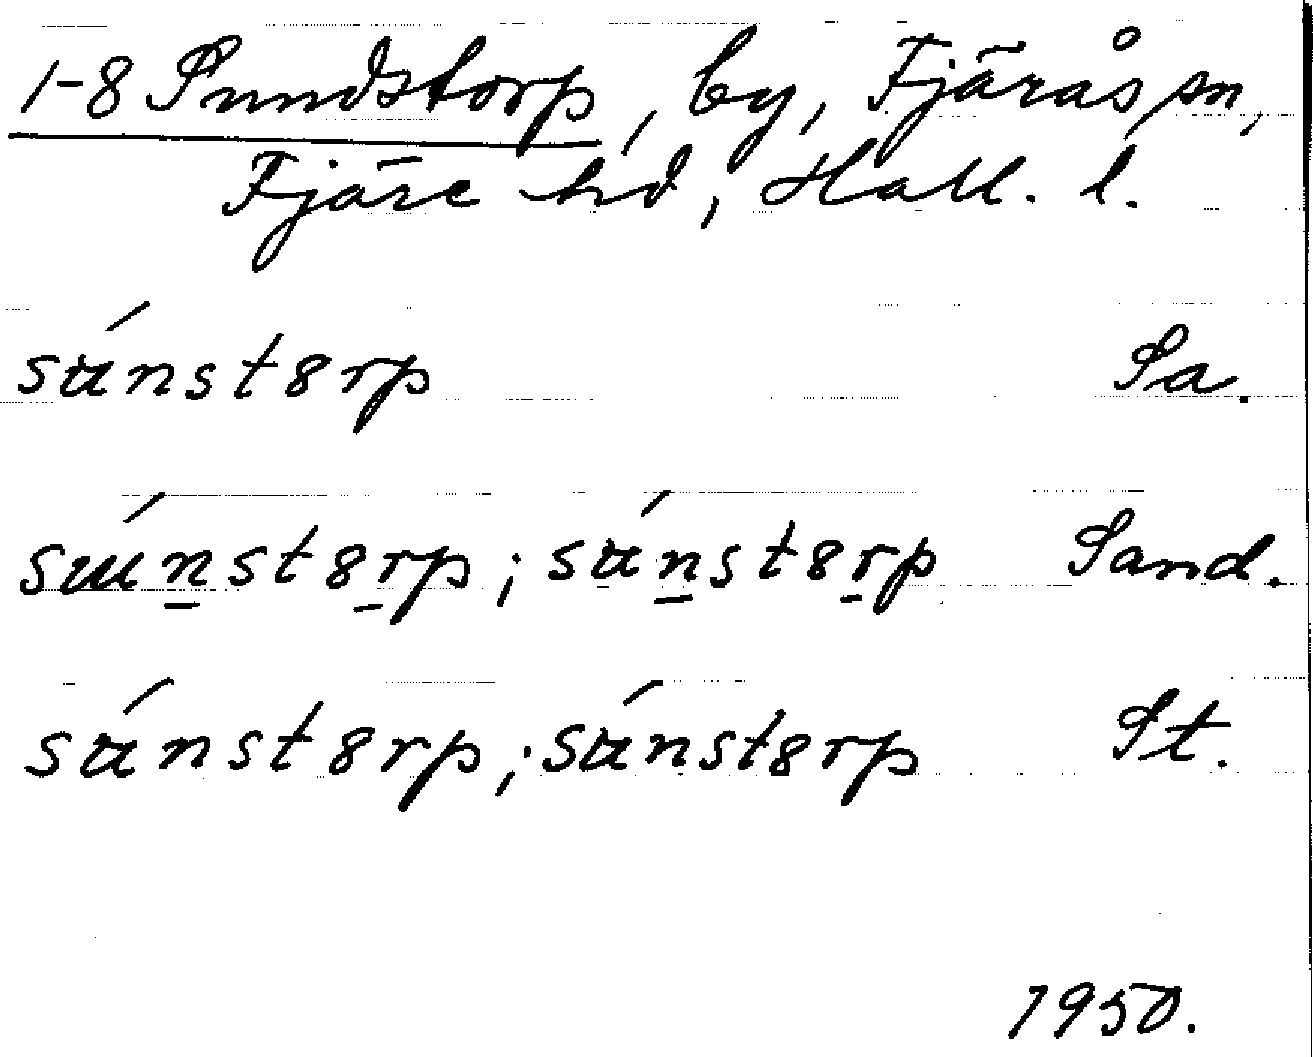 1-8 Sundstorp, by, Fjärås sn,
Fjäre hd, Hall. l.
súnst8rp Sa.
súṉst8ṟp; súṉst8ṟp Sand.
súnst8rp; súnst8rp St.
1950.